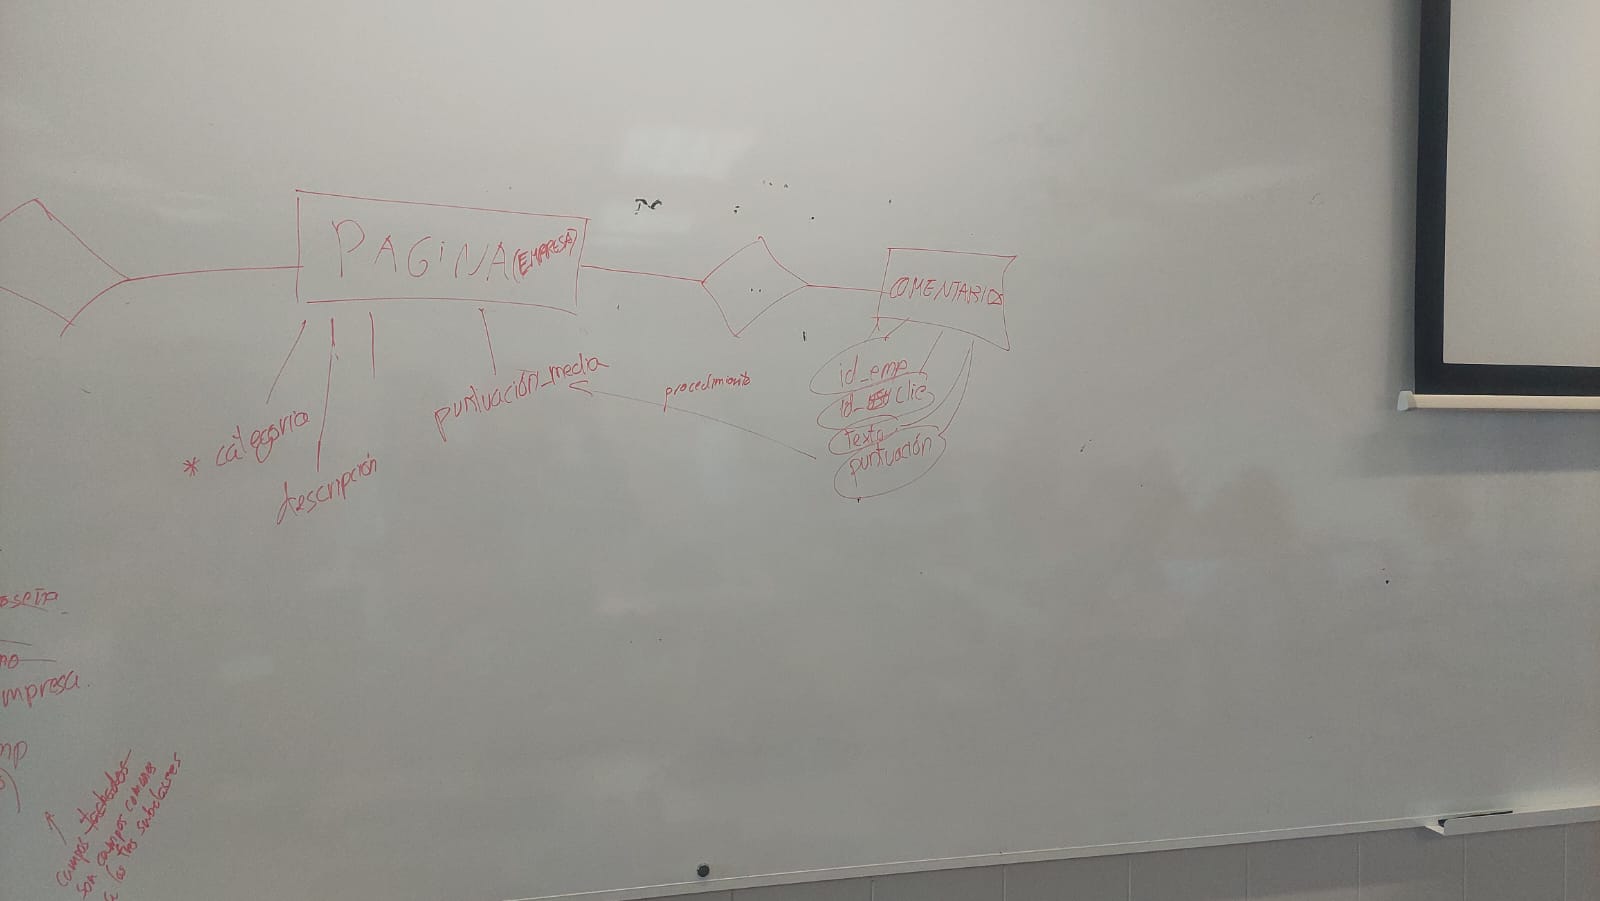 PAGINA (EMPRESA)
COMENTARIOS
* categoria
descripción
puntuación_media
procedimiento
id_emp
id_ clie
texto
puntuación
mpresa.
mp
campos tachados
son campos comunes
a las tres subclases